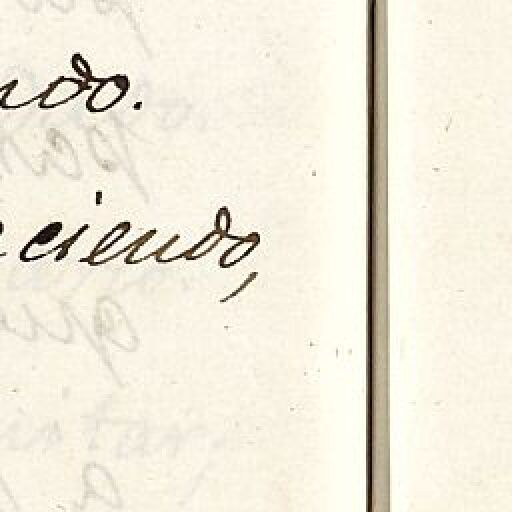 ndo.
eciendo,